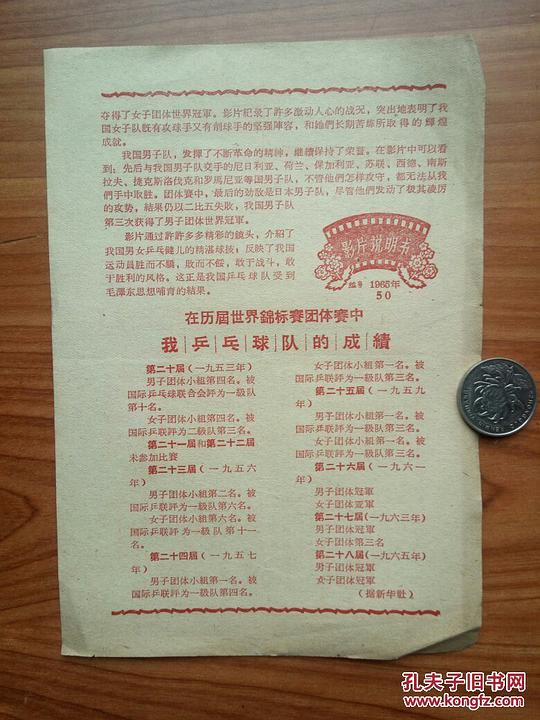 夺得了女子团体世界冠軍。影片紀录了許多激动人心的战况，突出地表明了我
国女子队既有攻球手又有削球手的坚强陣容，和她們长期苦練所取得的輝煌
成就。
我国男子队，发揮了不断革命的精神，継續保持了荣誉。在影片中可以看
到，先后与我国男子队交手的尼日利亚、荷兰、保加利亚、苏联、西德、南斯
拉夫、捷克斯洛伐克和罗馬尼亚等国男子队，不管他們怎样攻守，都无法从我
們手中取胜。团体赛中，最后的劲敌是日本男子队，尽管他們发动了极其凌厉
的攻势，結果仍以二比五失敗，我国男子队
第三次获得了男子团体世界冠軍。
影片通过許許多多精彩的鏡头，介紹了
我国男女乒乓健儿的精湛球技；反映了我国
运动員胜而不驕，敗而不餒，敢于战斗，敢
于胜利的风格。这正是我国乒乓球队受到
毛澤东思想哺育的結果。
影片说明书
編号 1965年
50
在历届世界錦标赛团体赛中
我乒乓球队的成績
第二十届(一九五三年)
男子团体小組第四名。被
国际乒乓球联合会評为一級队
第十名。
女子团体小組第四名。被
国际乒联評为二級队第三名。
第二十一届和第二十二届
未参加比賽
第二十三届(一九五六
年)
男子团体小組第二名。被
国际乒联評为一級队第六名。
女子团体小組第六名。被
国际乒联評为一級队第十一
名。
第二十四届(一九五七
年)
男子团体小組第一名。被
国际乒联評为一級队第四名。
女子团体小組第一名。被
国际乒联評为一級队第三名。
第二十五届(一九五九
年)
男子团体小組第一名。被
国际乒联評为一級队第三名。
女子团体小組第一名。被
国际乒联評为一級队第三名。
第二十六届(一九六一
年)
男子团体冠軍
女子团体亚軍
第二十七届(一九六三年)
男子团体冠軍
女子团体第三名
第二十八届(一九六五年)
男子团体冠軍
女子团体冠軍
(据新华社)
孔夫子旧书网